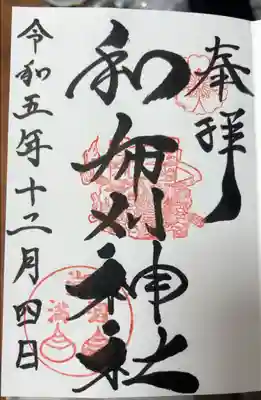 奉拝
和布刈神社
令和五年十二月四日